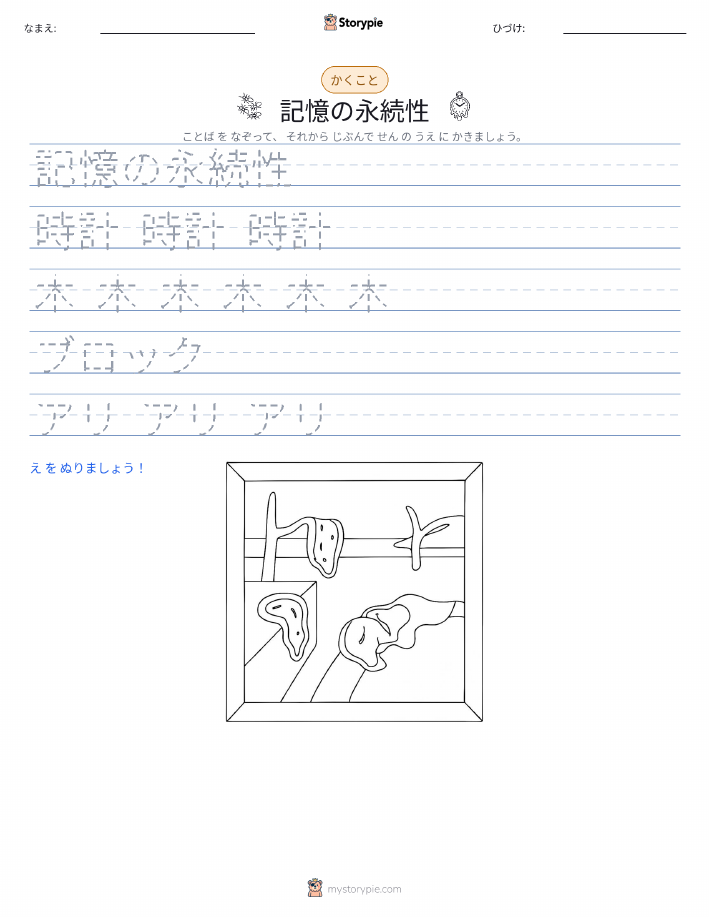 なまえ:
Storypie
ひづけ:
かくこと
記憶の永続性
ことば を なぞって、 それから じぶんで せん の うえ に かきましょう。
記憶の永続性
時計 時計 時計
木 木 木 木 木 木
ブロック
アリ アリ アリ
え を ぬりましょう！
mystorypie.com